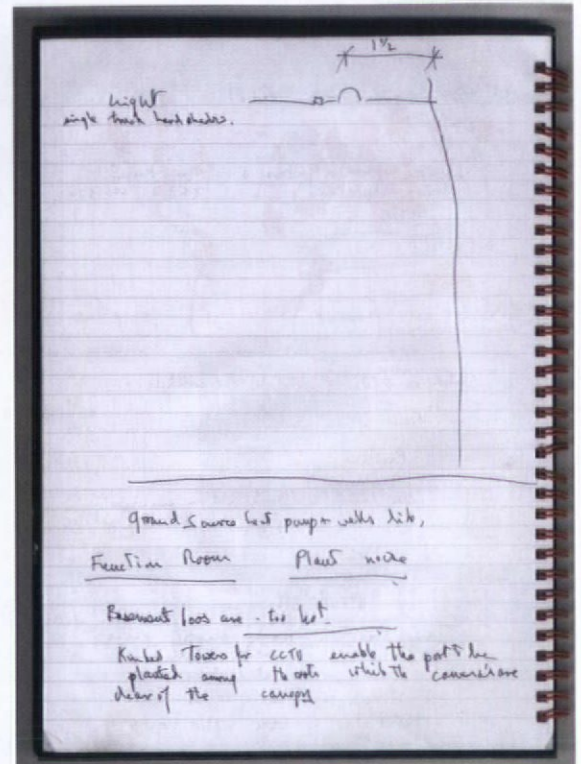 1½
Light
single track head shadow.
Ground Source heat pump + wells
Function Room Plant noise
Basement loos are - too hot.
Kinked Towers for CCTV enable the post to be
planted among the roots while the cameras are
clear of the canopy